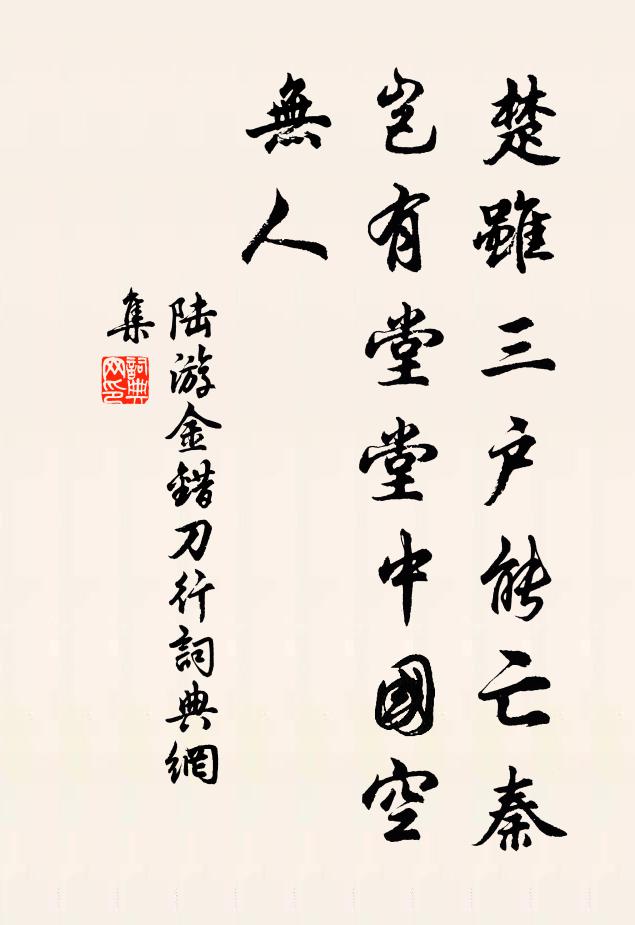 楚雖三户能亡秦
岂有堂堂中國空
無人
陆游金錯刀行詞典網
集
詞典
网印